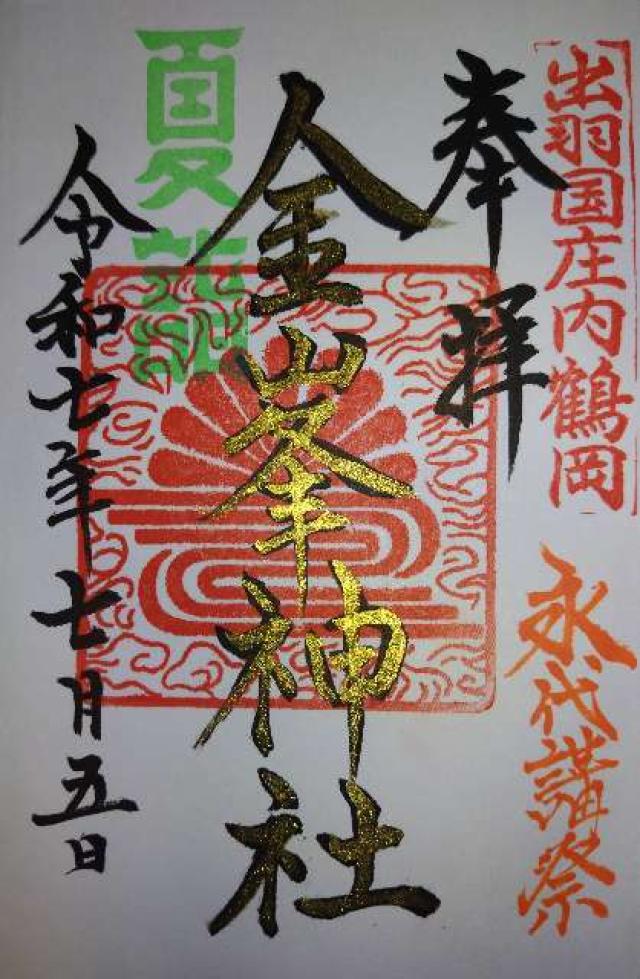 出羽国庄内鶴岡
永代講祭
奉拝
金峯神社
夏詣
令和七年七月五日